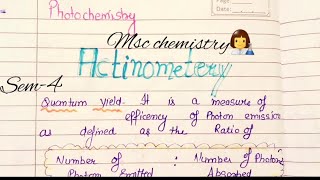 Photochemistry
Page
Date
Msc chemistry👩‍🔬
Actinometery
Sem-4
Quantum yield- It is a measure of
efficency of Photon emission
as defined as the Ratio of
Number of : Number of Photons
Photon Emitted Absorbed